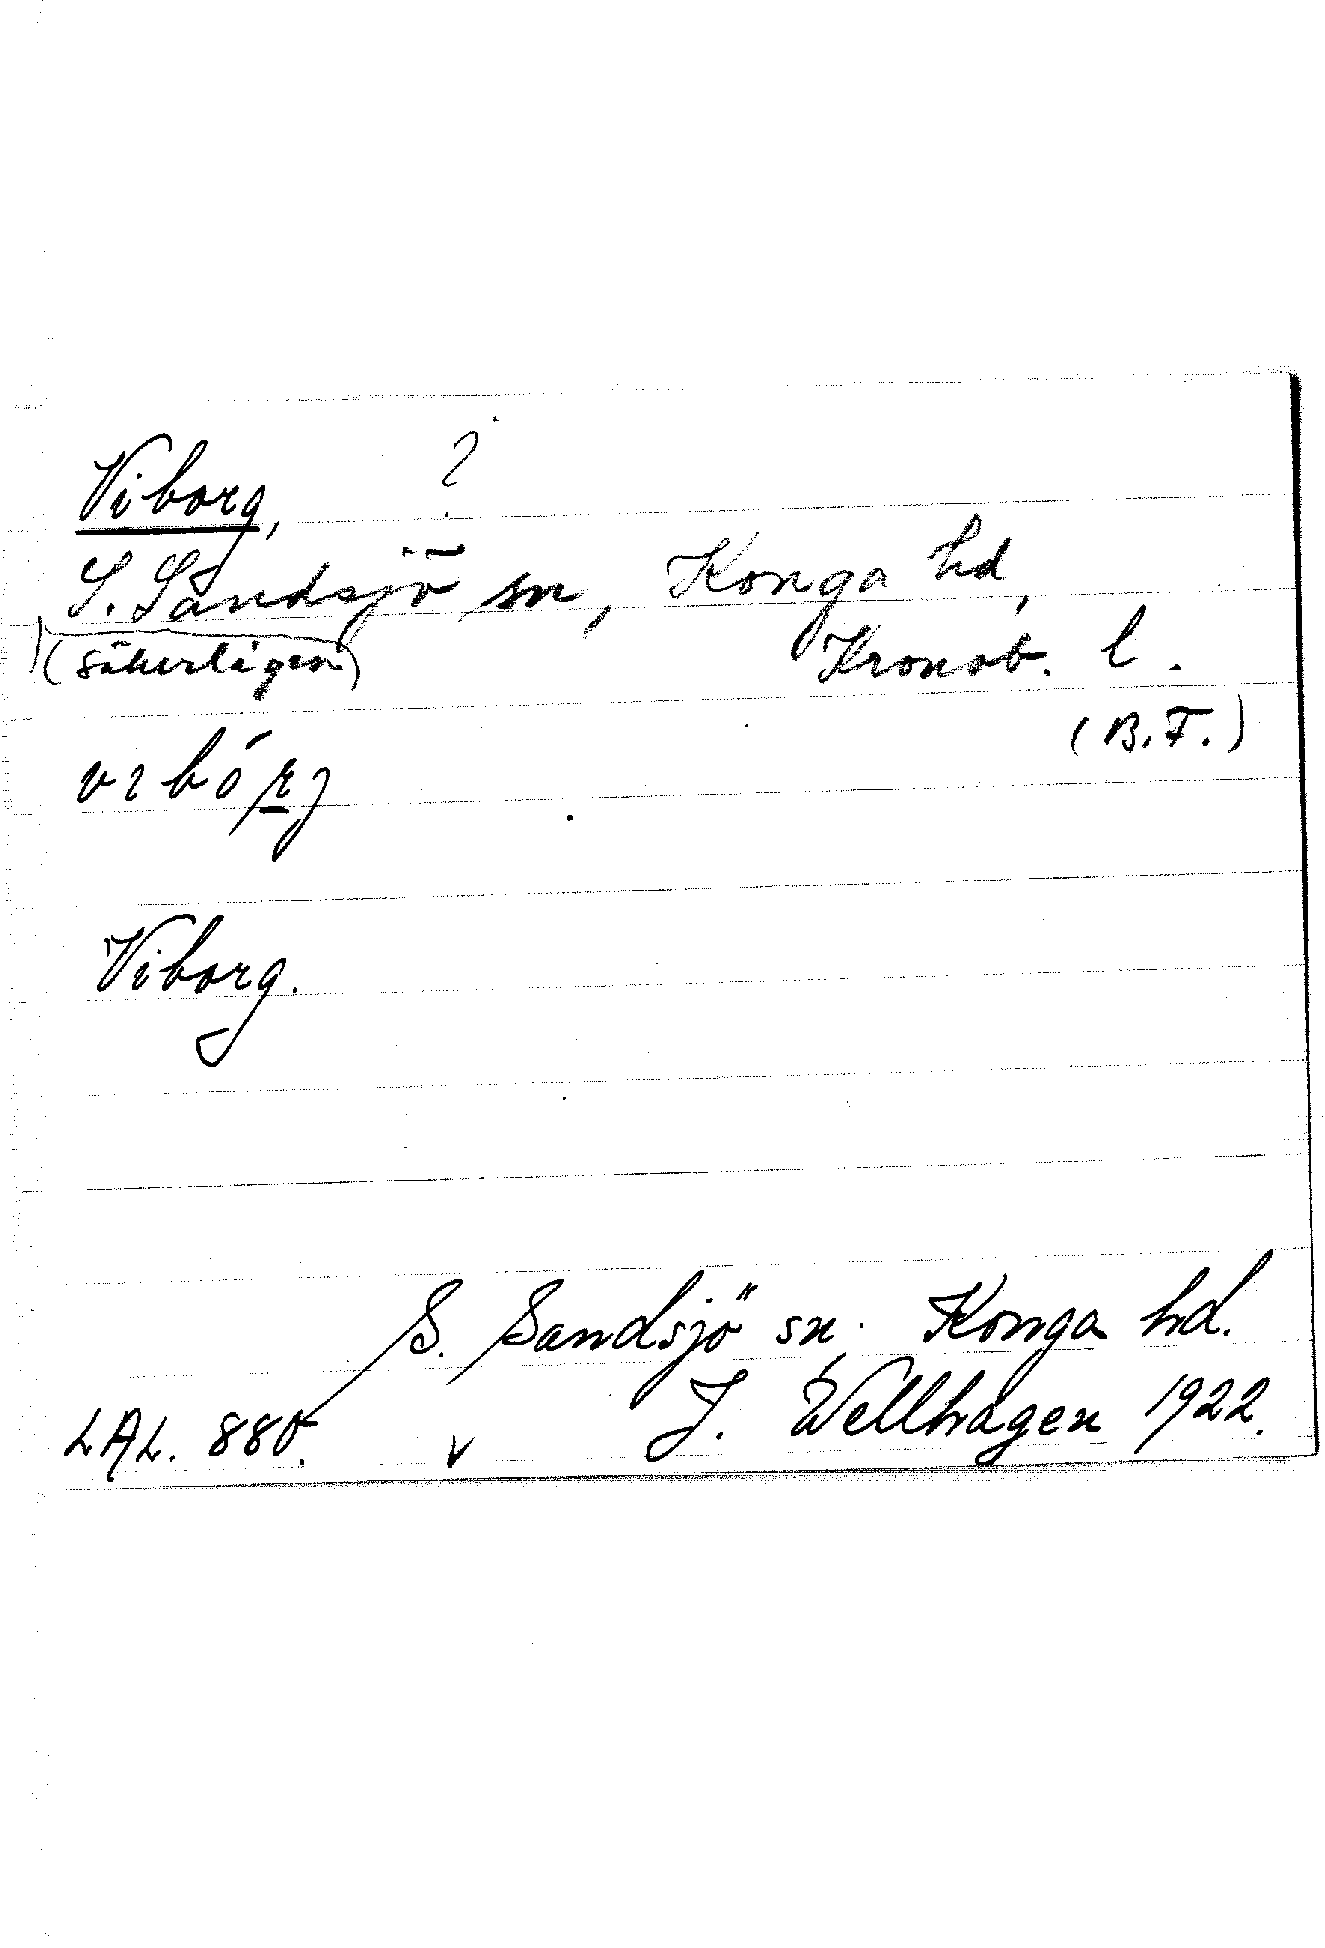 Viborg, ?
S. Sandsjö sn, Konga hd,
(säkerligen) Kronob. l.
(B.F.)
vibórj
Viborg.
S. Sandsjö sn. Konga hd.
LAL. 880. v J. Wellhagen 1922.